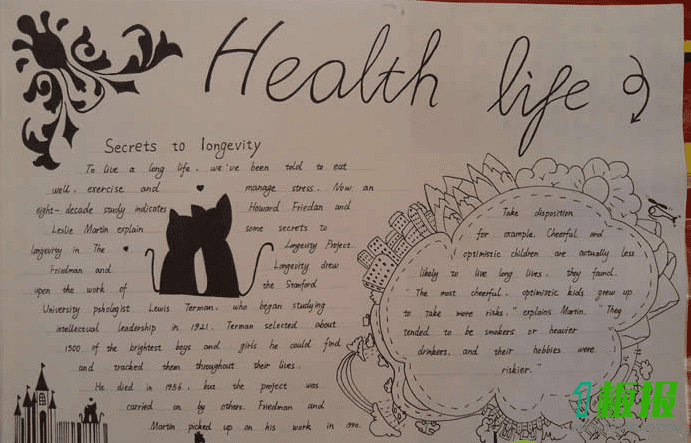 Health life
Secrets to longevity
To live a long life, we've been told to eat
well, exercise and manage stress. Now an
eight-decade study indicates Howard Friedan and
Leslie Martin explain some secrets to
longevity in The Longevity Project.
Friedman and Longevity drew
upon the work of the Stanford
University pshologist Lewis Terman, who began studying
intellectual leadership in 1921. Terman selected about
1500 of the brightest boys and girls he could find,
and tracked them throughout their lives.
He died in 1956, but the project was
carried on by others. Friedman and
Martin picked up on his work in 1990.
Take disposition
for example. Cheerful and
optimistic children are actually less
likely to live long lives, they found.
"The most cheerful, optimistic kids grew up
to take more risks," explains Martin. "They
tended to be smokers or heavier
drinkers, and their hobbies were
riskier."
板报